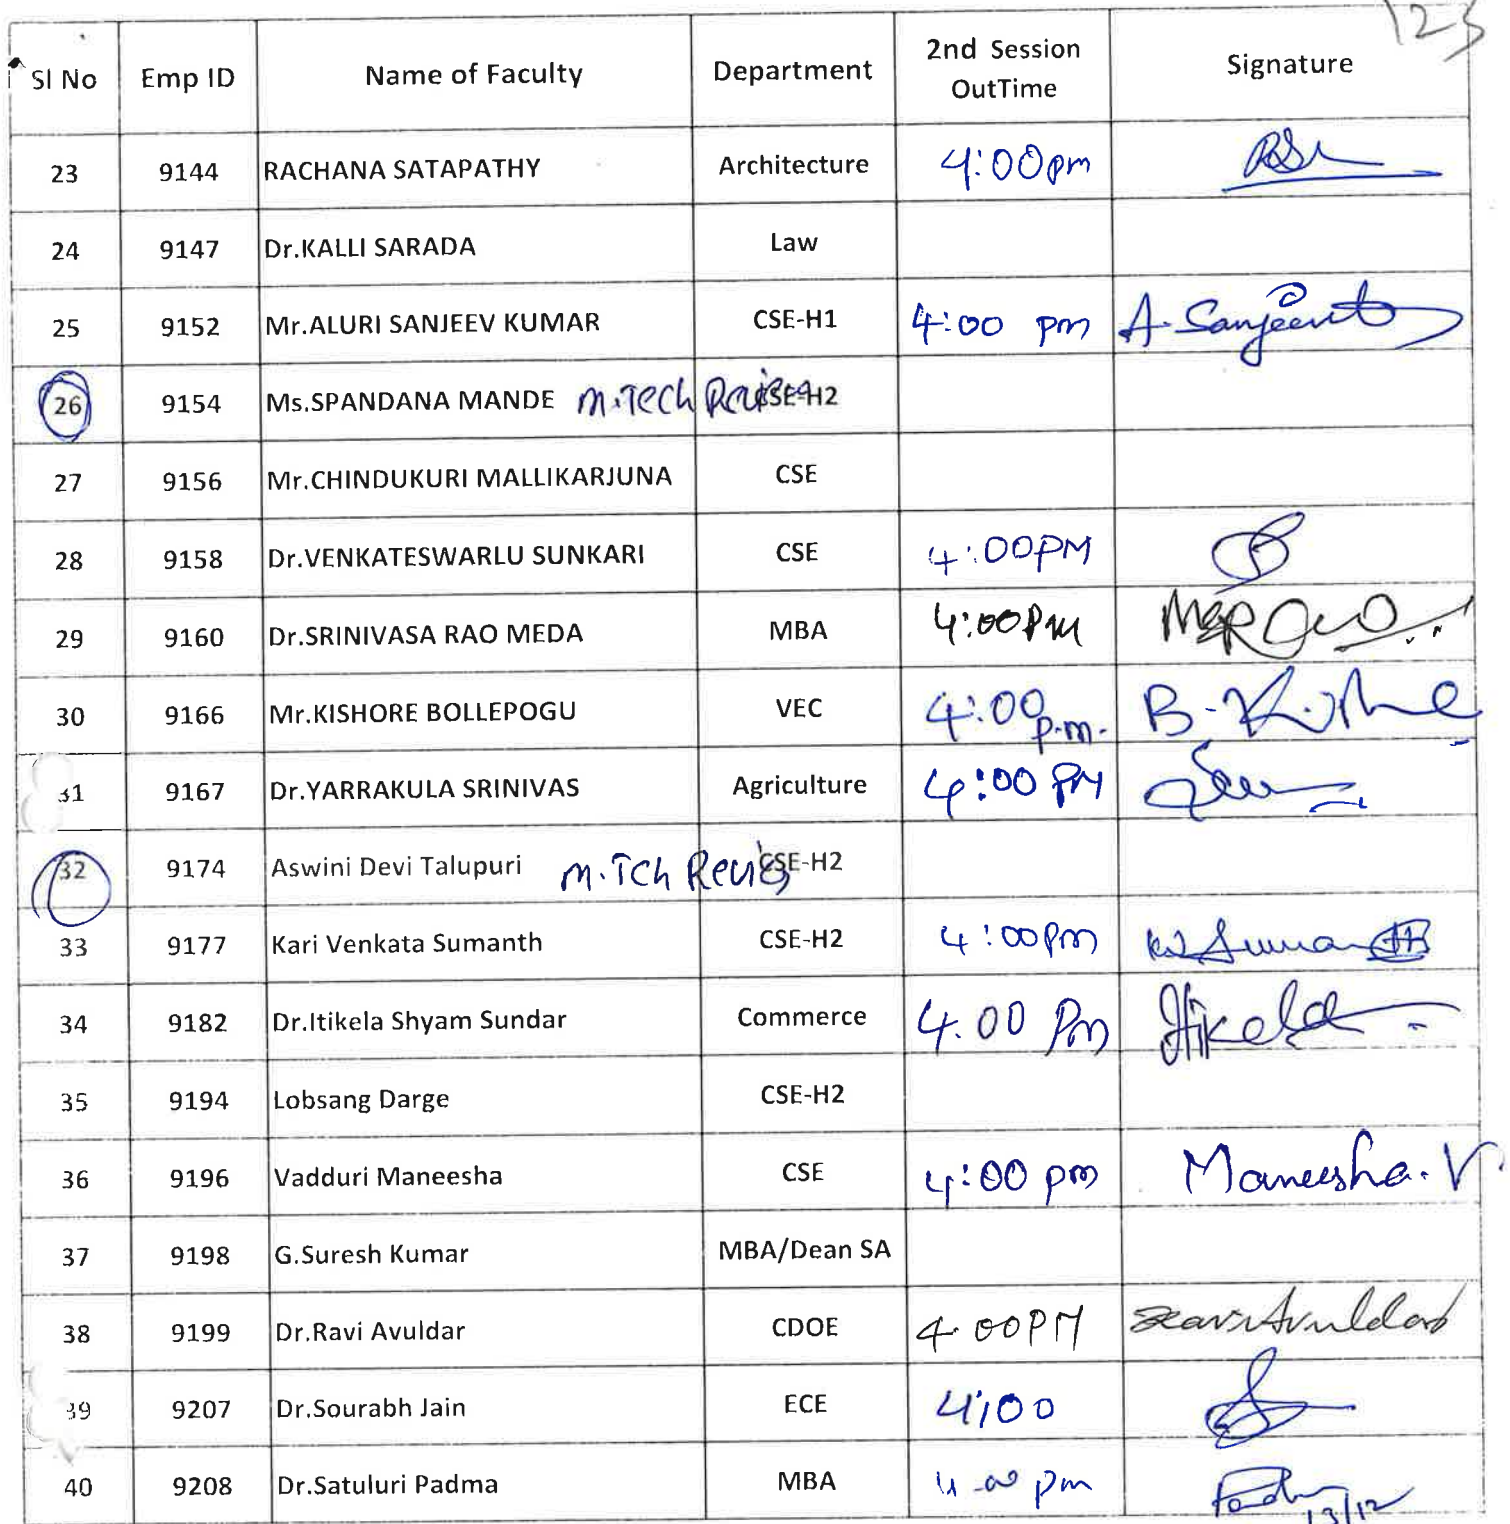 123
Sl No Emp ID Name of Faculty Department 2nd Session OutTime Signature
23 9144 RACHANA SATAPATHY Architecture 4:00pm
24 9147 Dr.KALLI SARADA Law
25 9152 Mr.ALURI SANJEEV KUMAR CSE-H1 4:00 pm A. Sanjeev
26 9154 Ms.SPANDANA MANDE M.Tech Review CSE-H2
27 9156 Mr.CHINDUKURI MALLIKARJUNA CSE
28 9158 Dr.VENKATESWARLU SUNKARI CSE 4:00PM
29 9160 Dr.SRINIVASA RAO MEDA MBA 4:00PM
30 9166 Mr.KISHORE BOLLEPOGU VEC 4:00 p.m. B. Kishore
31 9167 Dr.YARRAKULA SRINIVAS Agriculture 4:00 PM
32 9174 Aswini Devi Talupuri M.Tch Review CSE-H2
33 9177 Kari Venkata Sumanth CSE-H2 4:00pm
34 9182 Dr.Itikela Shyam Sundar Commerce 4.00 Pm Itikela
35 9194 Lobsang Darge CSE-H2
36 9196 Vadduri Maneesha CSE 4:00 pm Maneesha. V
37 9198 G.Suresh Kumar MBA/Dean SA
38 9199 Dr.Ravi Avuldar CDOE 4.00PM Ravi Avuldar
39 9207 Dr.Sourabh Jain ECE 4:00
40 9208 Dr.Satuluri Padma MBA 4.00 pm Padma 13/12